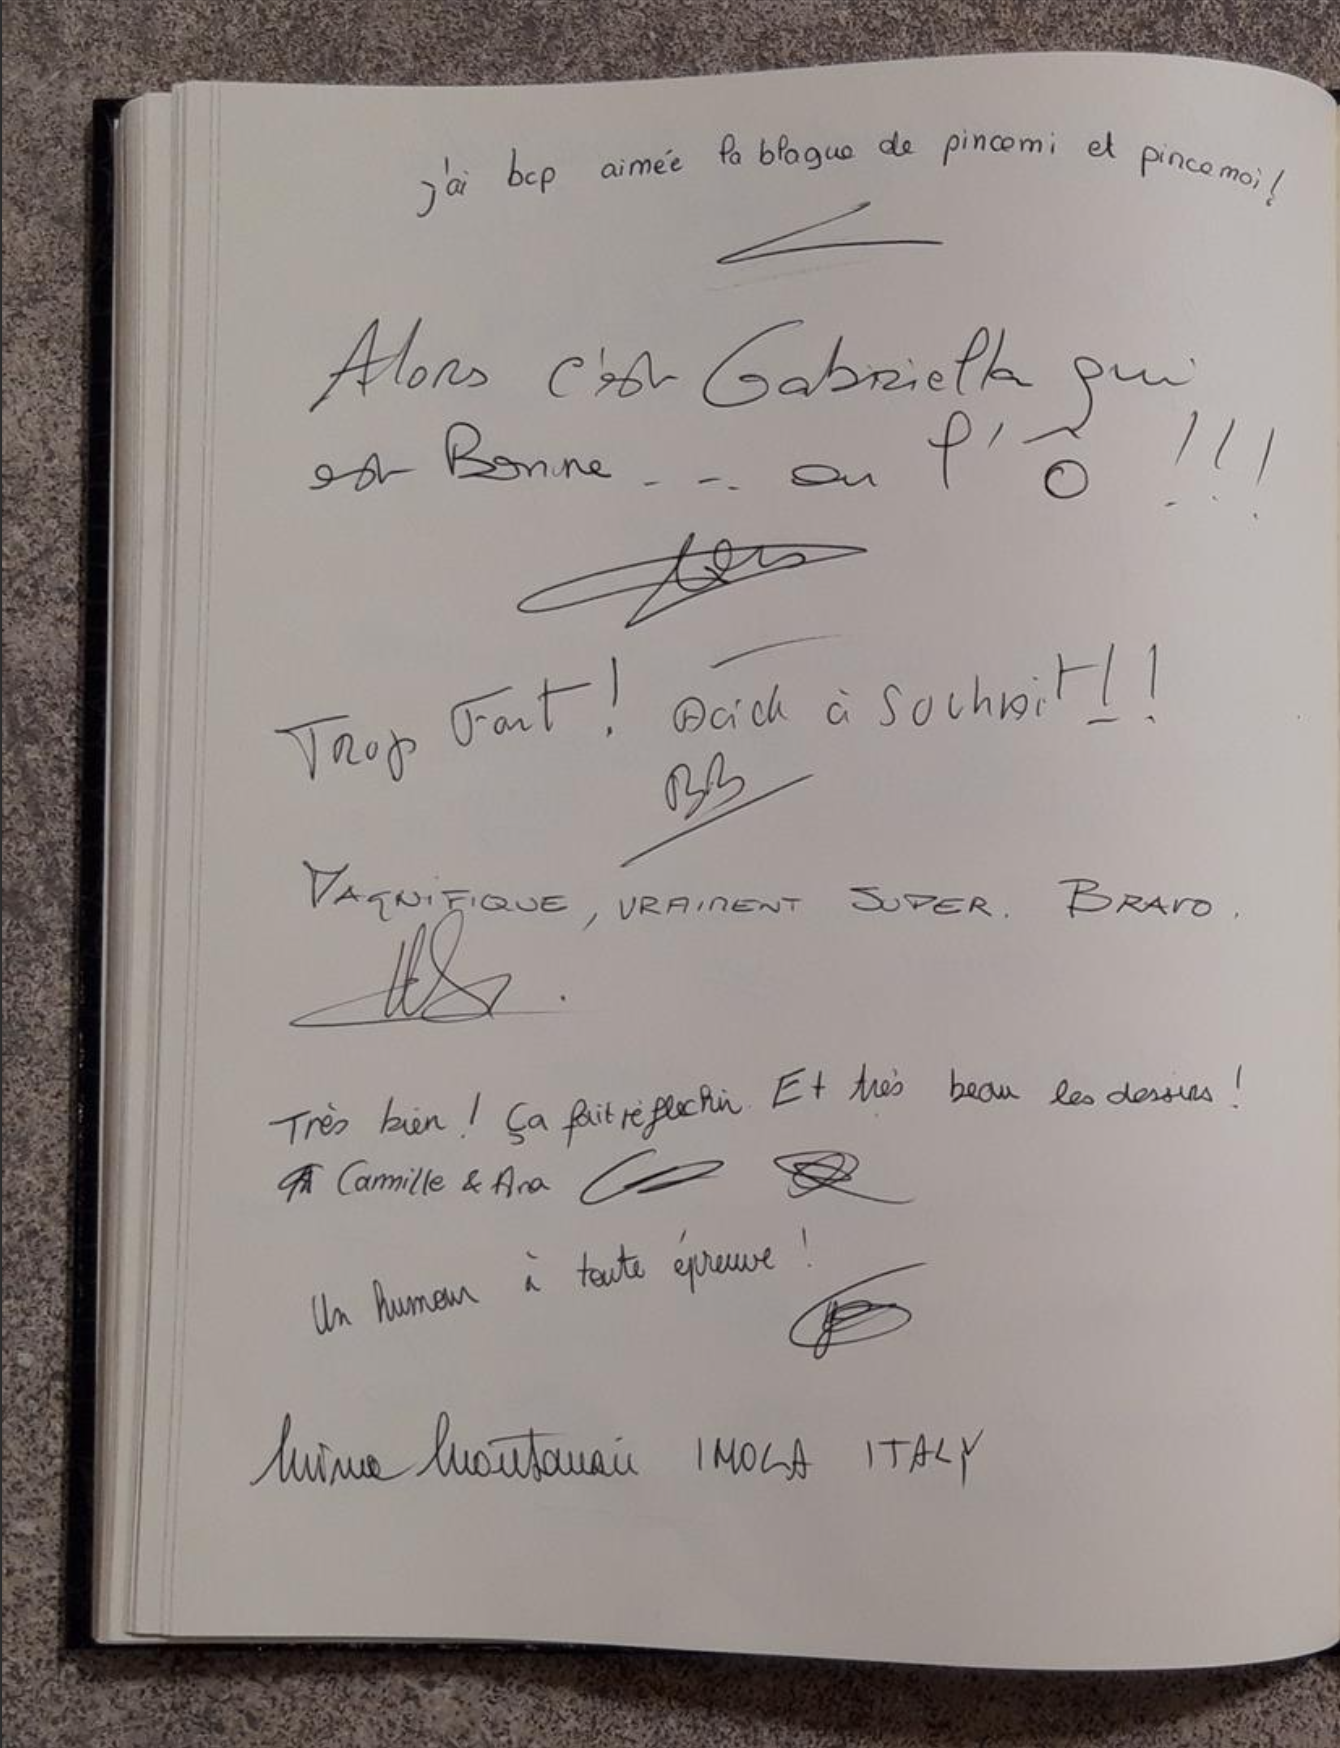 j'ai bcp aimée la blague de pincemi et pincemoi !
Alors c'est Gabriella qui
est Bonne - - -. ou l'Ô !!!
Trop Fort ! Acide à Souhait !!
BB
MAGNIFIQUE, VRAIMENT SUPER. BRAVO.
Très bien ! ça fait réflechir. Et très beau les dessins !
Camille & Ana
Un humour à toute épreuve !
IMOLA ITALY